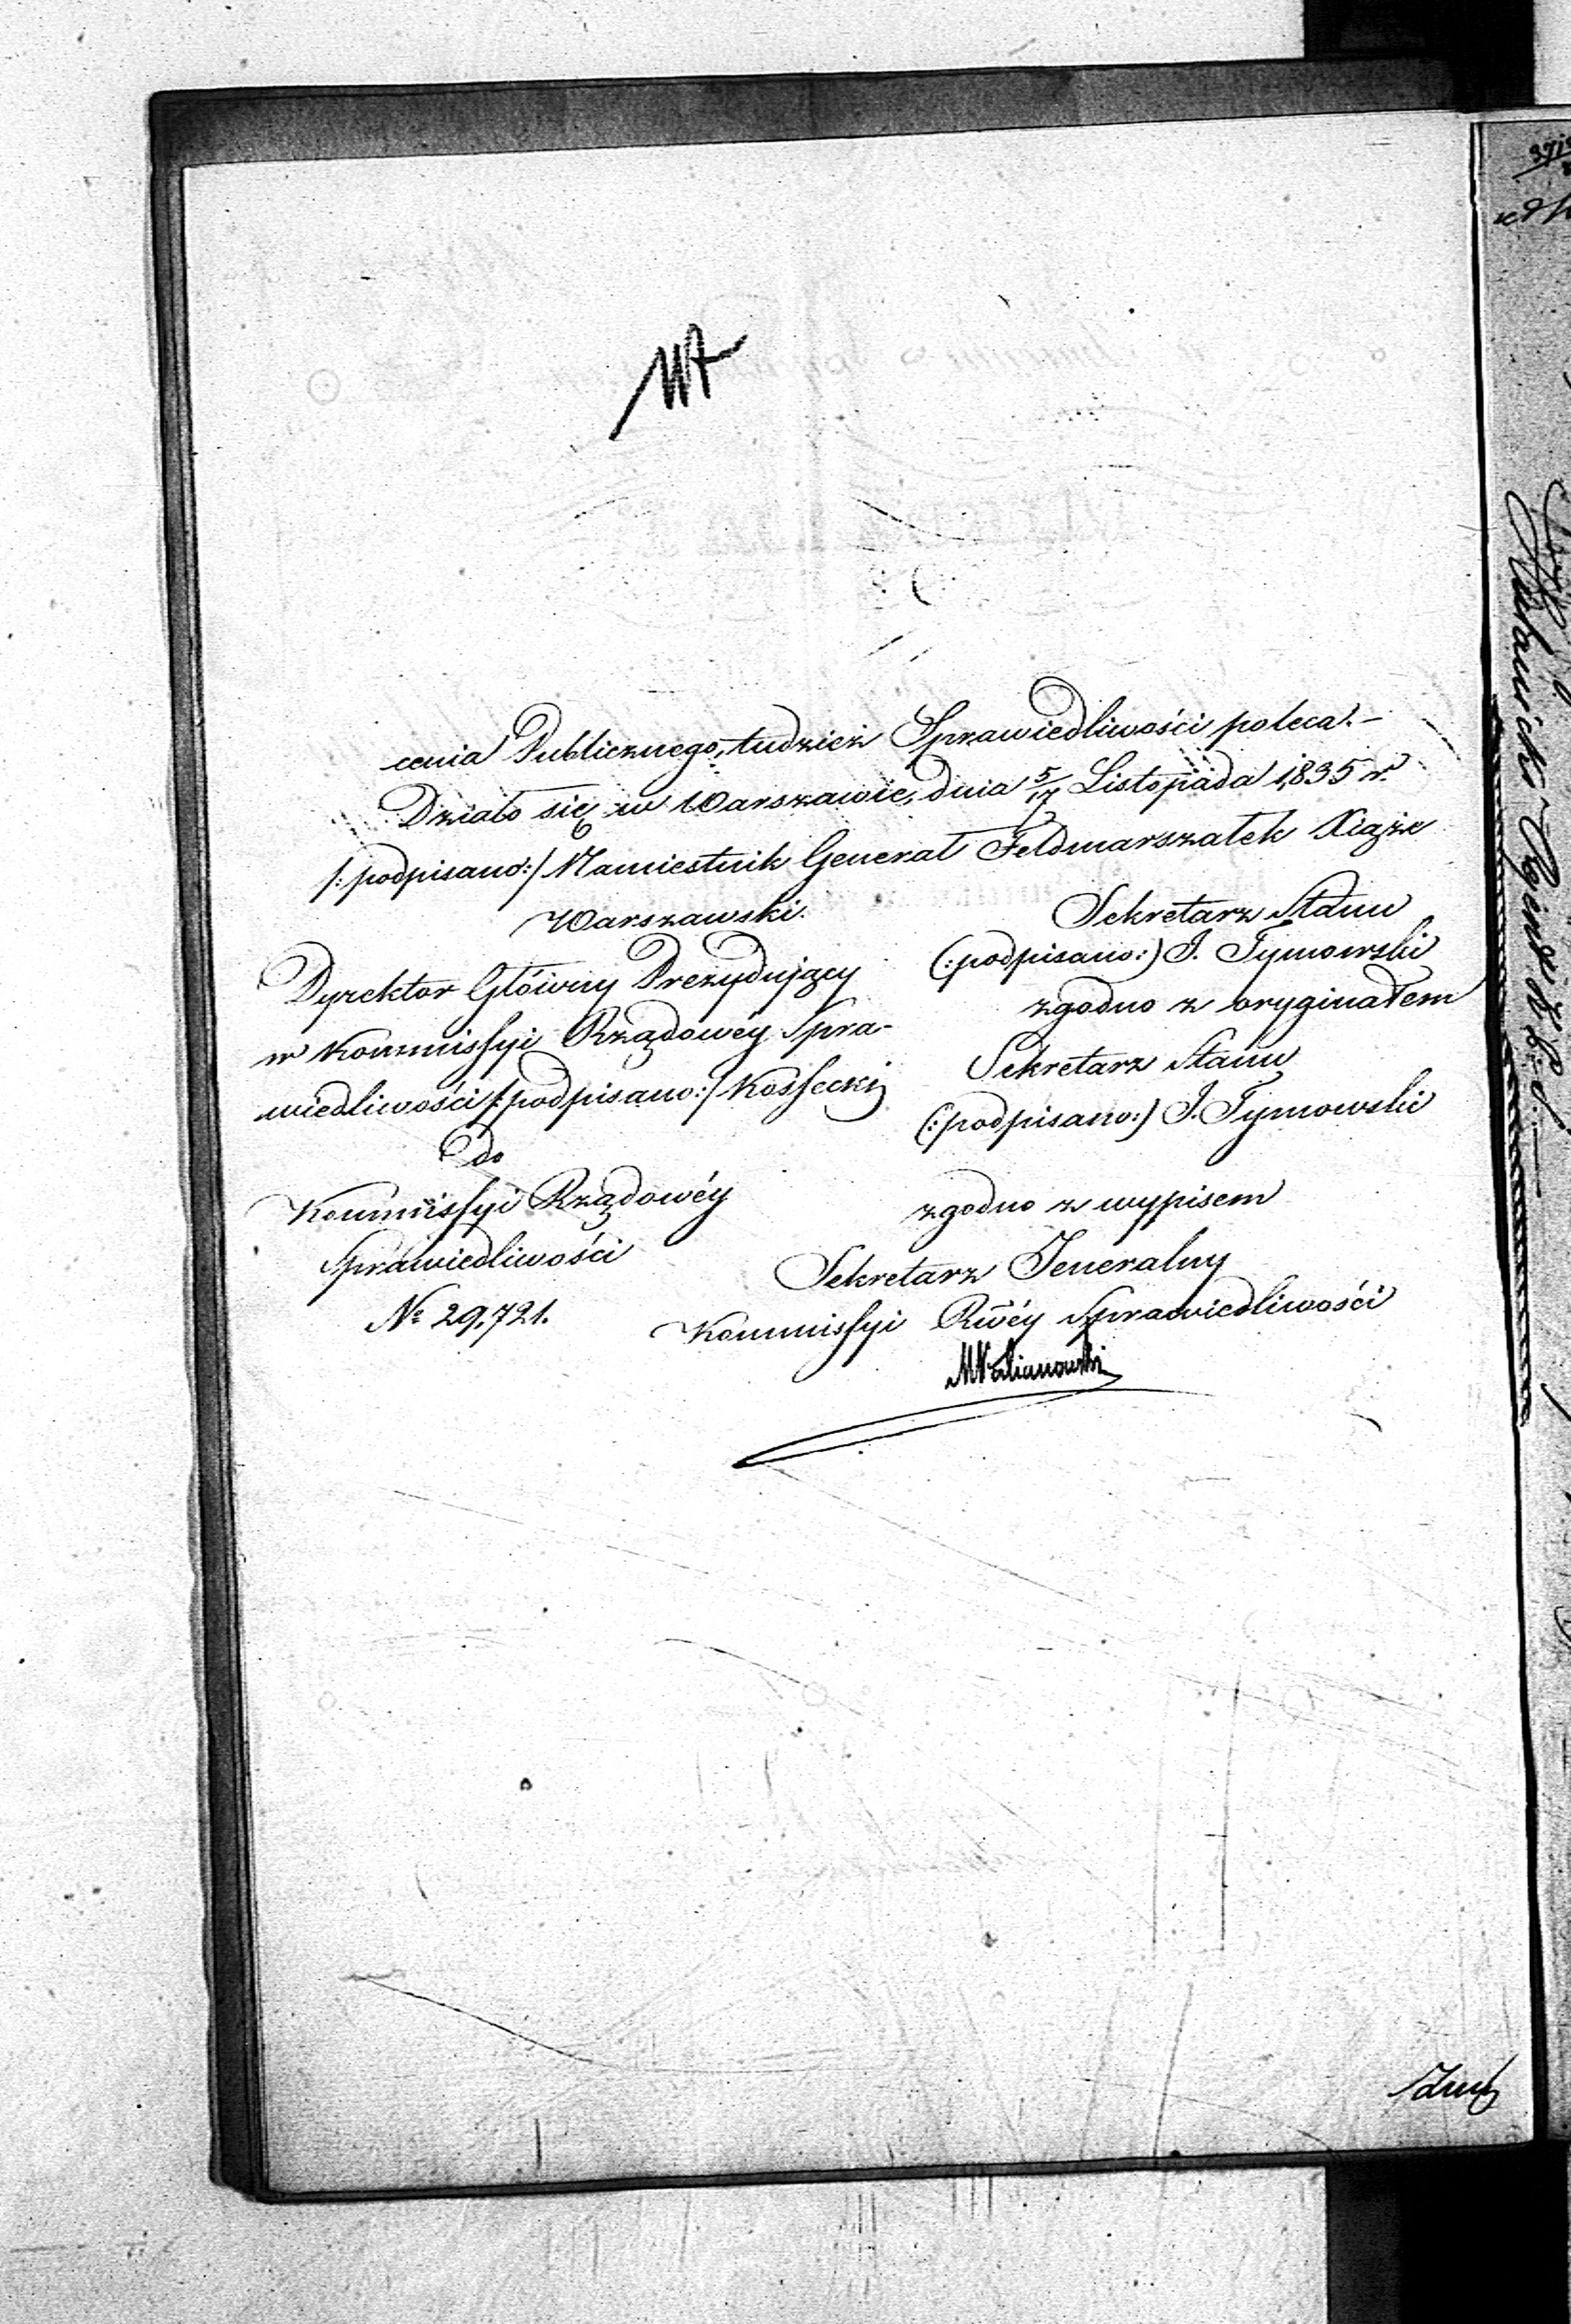 cenia Publicznego, tudzież Sprawiedliwości poleca.-
Działo się w Warszawie, dnia 5/17 Listopada 1835 r.
/:podpisano:/ Namiestnik Generał Feldmarszałek Xiąże
Warszawski.
Dyrektor Główny Prezydujący
w Kommissyi Rządowéy Spra-
wiedliwości /:podpisano:/ Kossecki
do
Kommissyi Rządowéy
Sprawiedliwości
№ 29,721.
Sekretarz Stanu
(:podpisano:) J. Tymowski
zgodno z oryginałem
Sekretarz Stanu
(:podpisano:) J. Tymowski
zgodno z wypisem
Sekretarz Jeneralny
Kommissyi Rwéy Sprawiedliwości